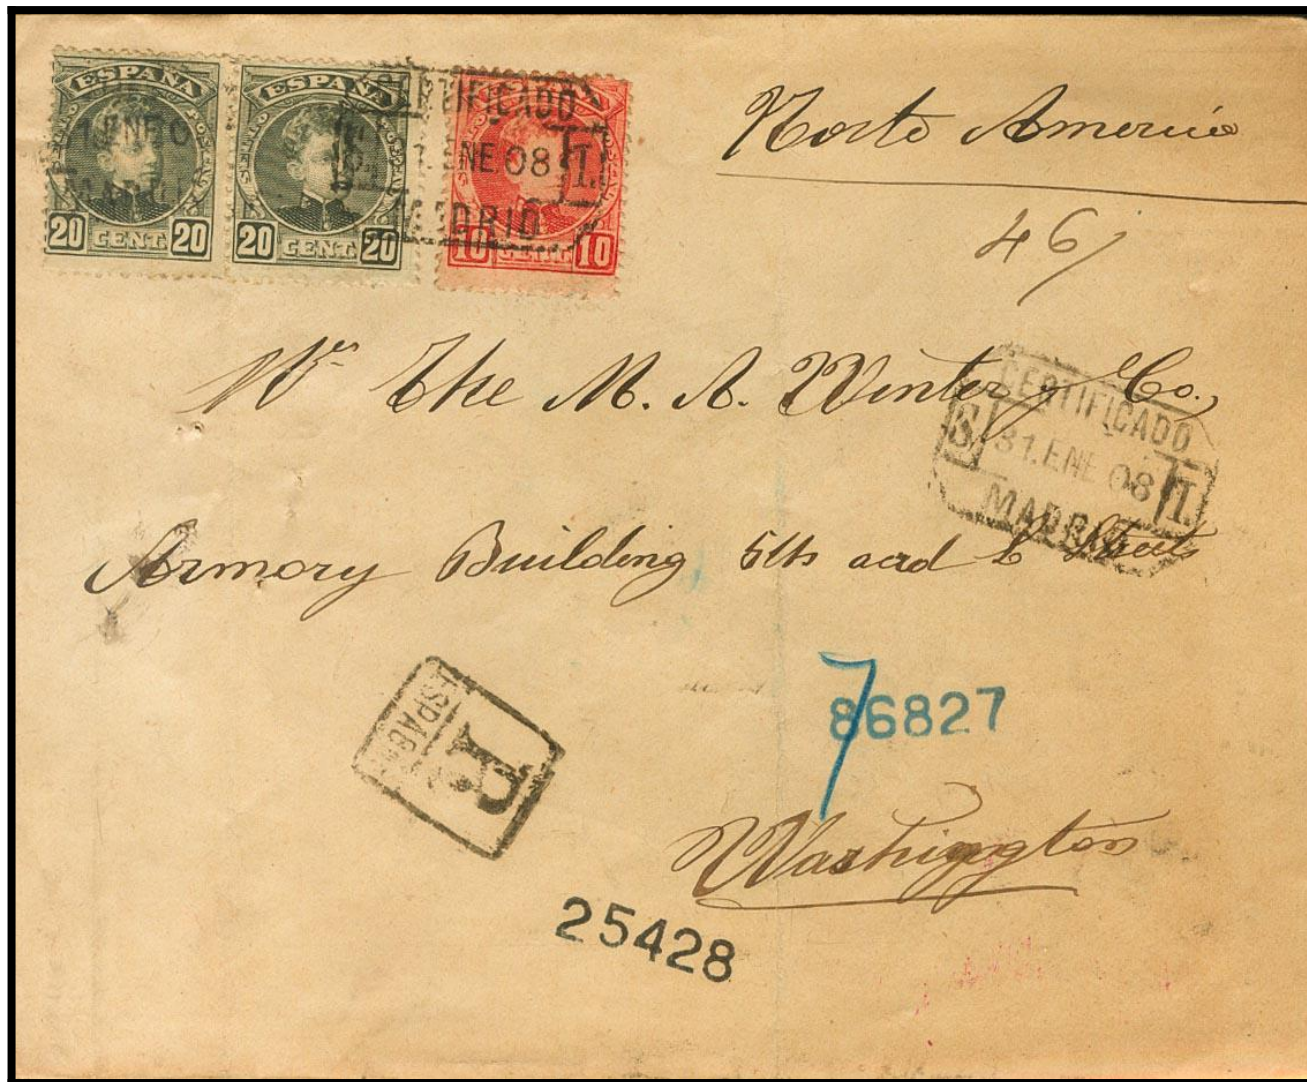 ESPAÑA ESPAÑA
20 CENT. 20 20 CENT. 20 10 CENT. 10
CERTIFICADO
1.ENE 08 T.
MADRID
Norte America
46
Mr The M. A. Winter y Co.,
CERTIFICADO
S. 31.ENE 08 T.
MADRID
Armory Building 5th and C Streets
R
ESPAÑA
7
86827
Washington
25428